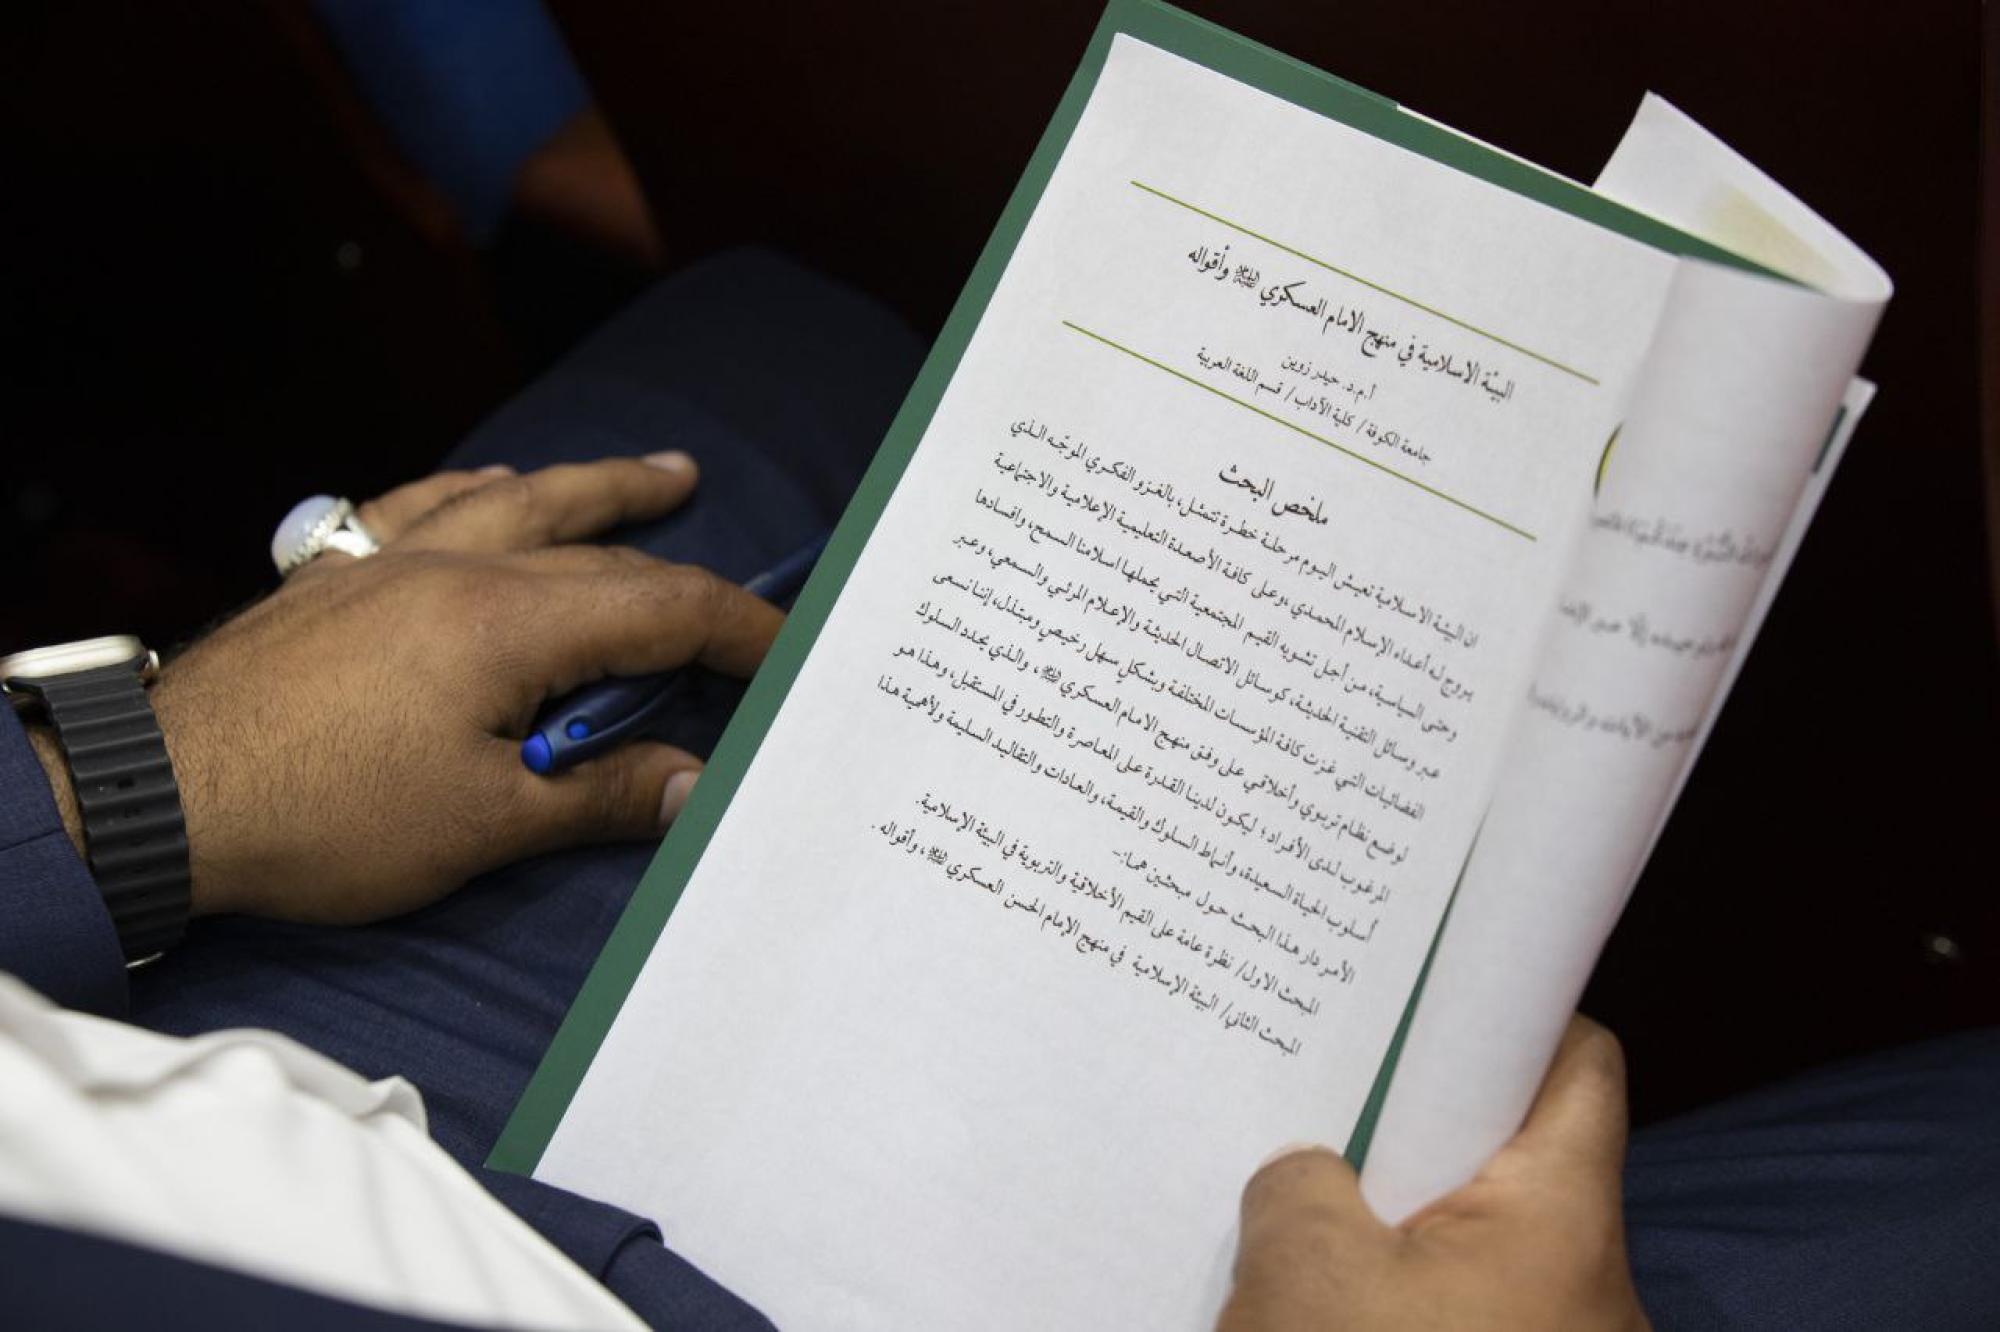 البيئة الاسلامية في منهج الامام العسكري عليه السلام وأقواله
أ.م.د. حيدر زوين
جامعة الكوفة / كلية الآداب / قسم اللغة العربية
ملخص البحث
ان البيئة الاسلامية تعيش اليوم مرحلة خطرة تتمثل، بالغزو الفكري الموجّه الذي
يروج له أعداء الإسلام المحمدي، وعلى كافة الأصعدة التعليمية الإعلامية والاجتماعية
وحتى السياسية، من أجل تشويه القيم المجتمعية التي يحملها اسلامنا السمح، وافسادها
عبر وسائل التقنية الحديثة، كوسائل الاتصال الحديثة والإعلام المرئي والسمعي، وعبر
الفضائيات التي غزت كافة المؤسسات المختلفة وبشكل سهل رخيص ومبتذل، إننا نسعى
لوضع نظام تربوي وأخلاقي على وفق منهج الامام العسكري عليه السلام، والذي يحدد السلوك
المرغوب لدى الأفراد؛ ليكون لدينا القدرة على المعاصرة والتطور في المستقبل، وهذا هو
أسلوب الحياة السعيدة، وأنماط السلوك والقيمة، والعادات والتقاليد السليمة ولأهمية هذا
الأمر دار هذا البحث حول مبحثين هما:-
المبحث الاول/ نظرة عامة على القيم الأخلاقية والتربوية في البيئة الإسلامية.
المبحث الثاني/ البيئة الإسلامية في منهج الإمام الحسن العسكري عليه السلام، وأقواله.